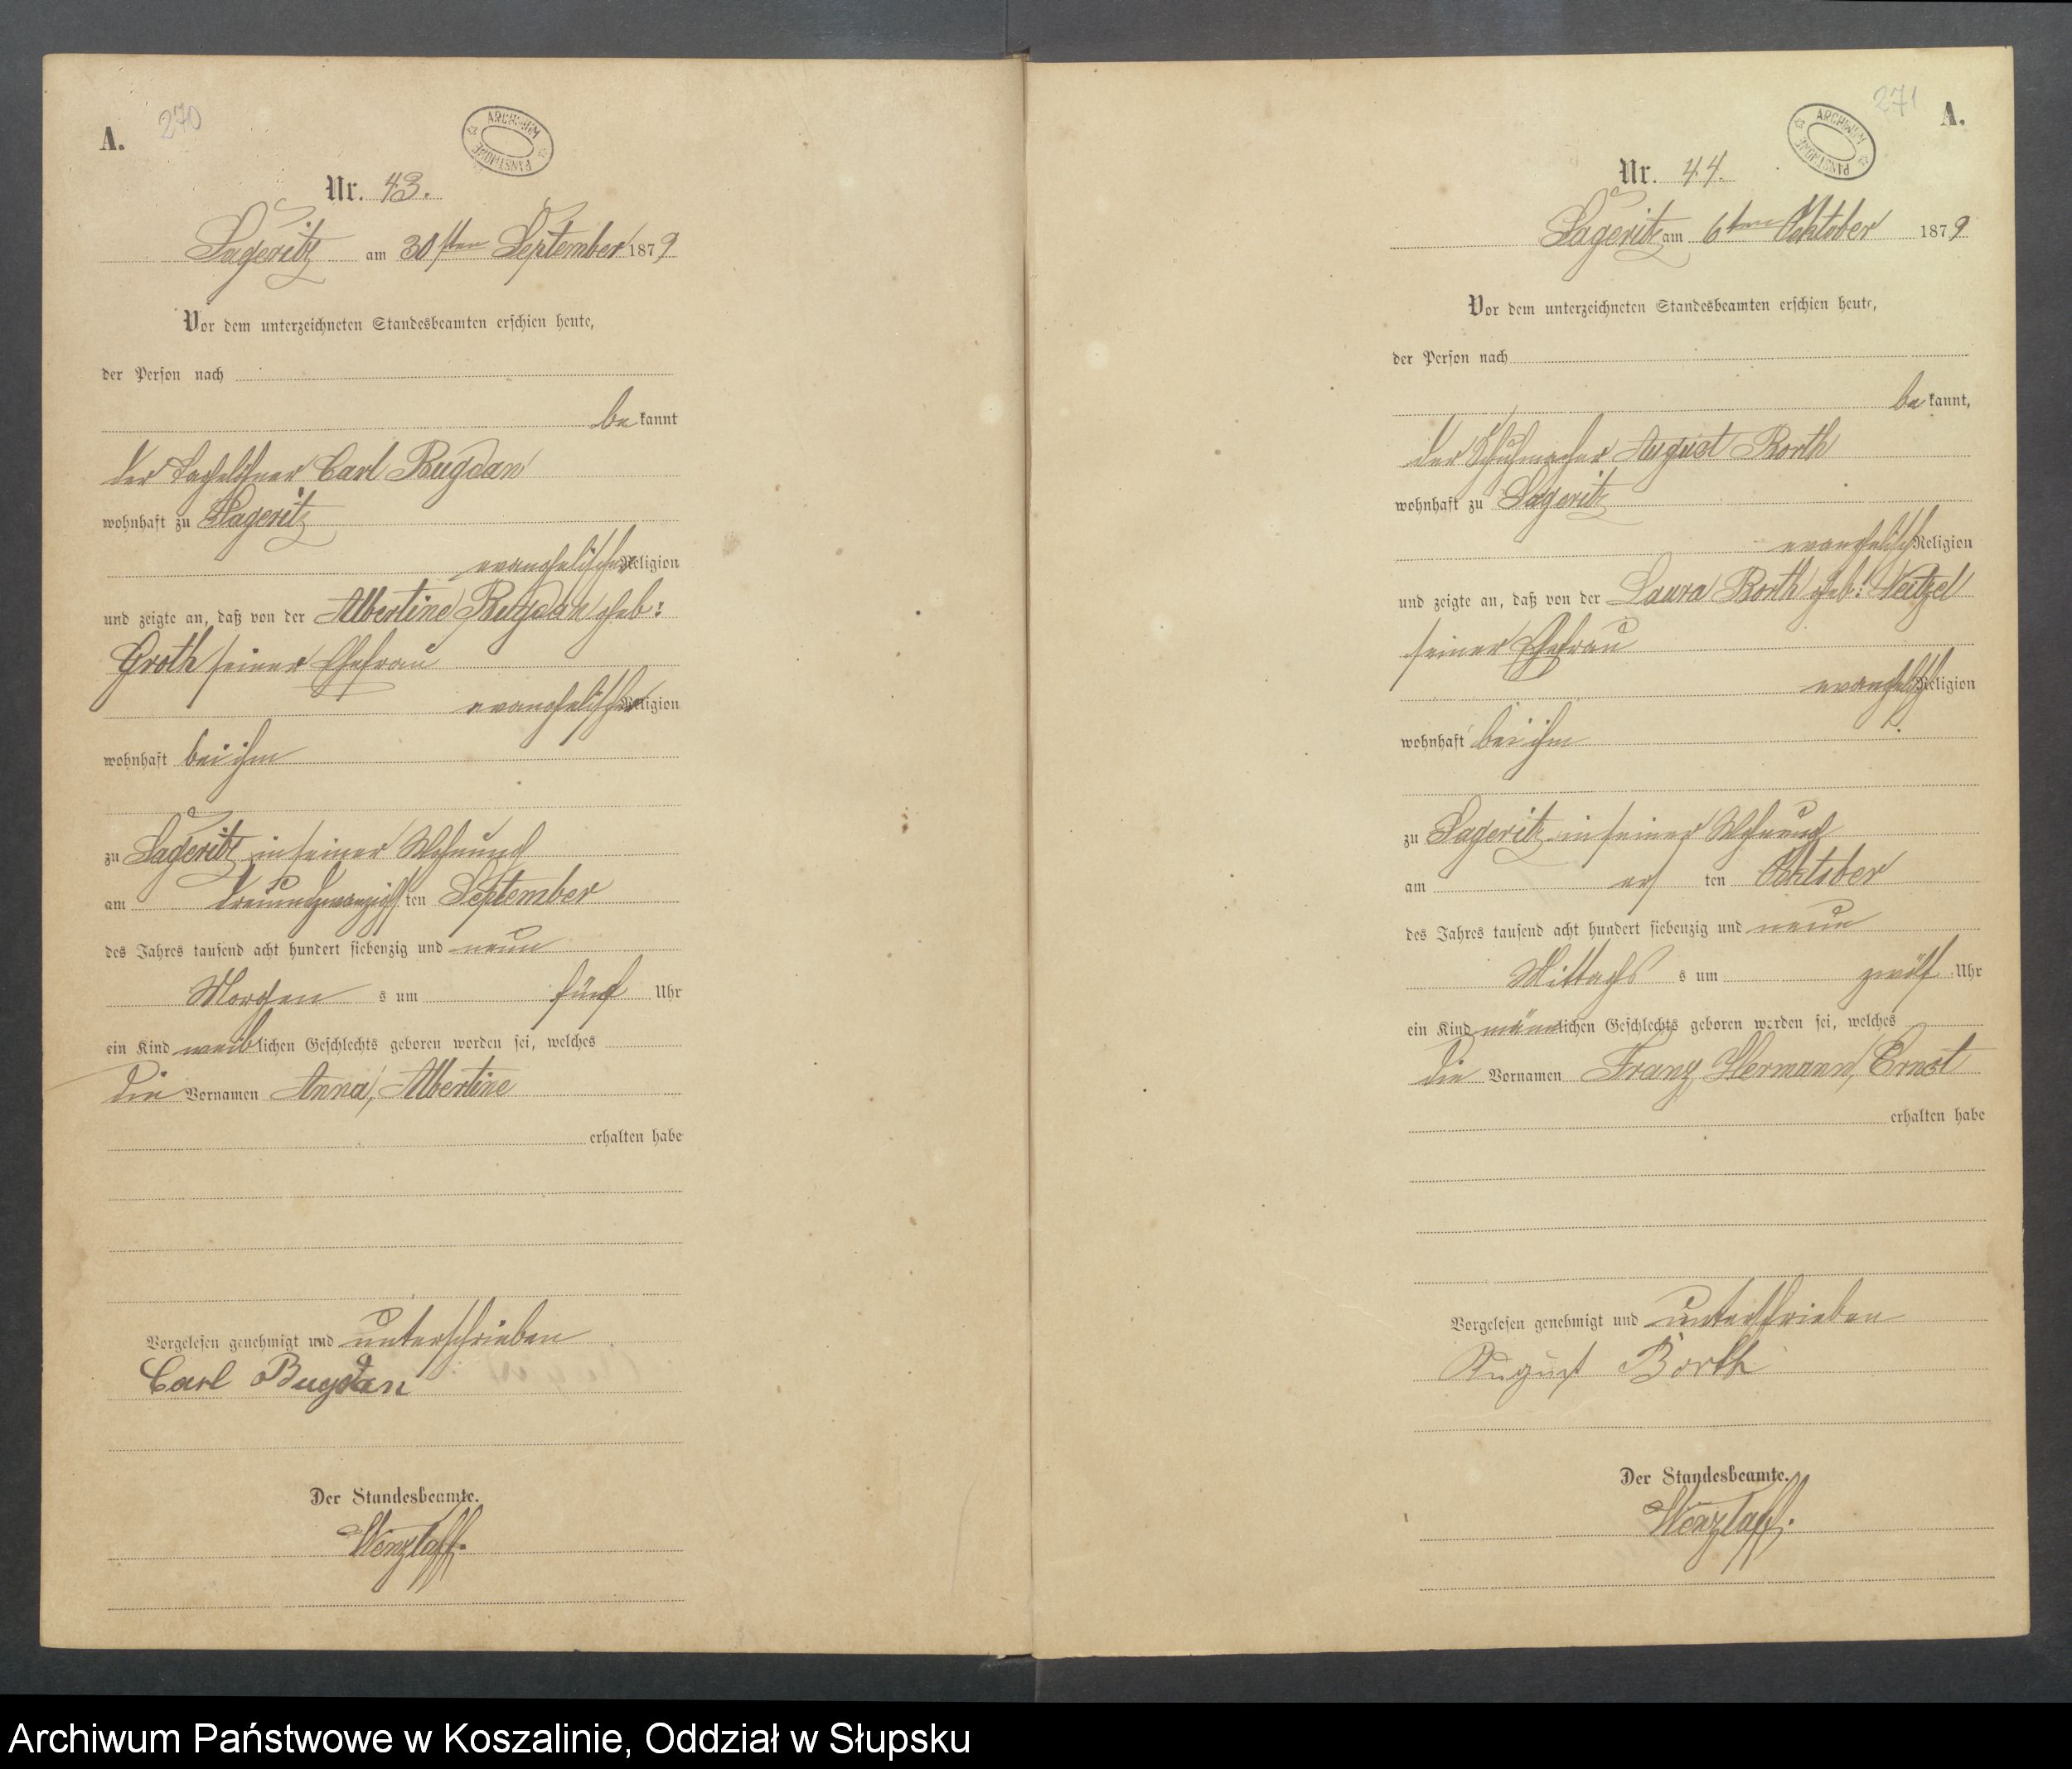 A.
270
ARCHIWUM PAŃSTWOWE
Nr. 43.
Sageritz am 30sten September 1879
Vor dem unterzeichneten Standesbeamten erschien heute,
der Person nach
be kannt
der Tagelöhner Carl Bugdan
wohnhaft zu Sageritz
evangelischer Religion
und zeigte an, daß von der Albertine Bugdan geb:
Groth seiner Ehefrau
evangelischer Religion
wohnhaft bei ihm
zu Sageritz in seiner Wohnung
am dreiundzwanzigsten September
des Jahres tausend acht hundert siebenzig und neun
Morgen s um fünf Uhr
ein Kind weiblichen Geschlechts geboren worden sei, welches
die Vornamen Anna, Albertine
erhalten habe
Vorgelesen genehmigt und unterschrieben
Carl Bugdan
Der Standesbeamte.
Wenzlaff.
271
A.
ARCHIWUM PAŃSTWOWE
Nr. 44.
Sageritz am 6ten Oktober 1879
Vor dem unterzeichneten Standesbeamten erschien heute,
der Person nach
be kannt,
der Schuhmacher August Borth
wohnhaft zu Sageritz
evangelisch Religion
und zeigte an, daß von der Laura Borth geb: Neitzel
seiner Ehefrau
evangelisch Religion
wohnhaft bei ihm
zu Sageritz in seiner Wohnung
am ers ten Oktober
des Jahres tausend acht hundert siebenzig und neun
Mittags s um zwölf Uhr
ein Kind männlichen Geschlechts geboren worden sei, welches
die Vornamen Franz, Hermann, Ernst
erhalten habe
Vorgelesen genehmigt und unterschrieben
August Borth
Der Standesbeamte.
Wenzlaff.
Archiwum Państwowe w Koszalinie, Oddział w Słupsku